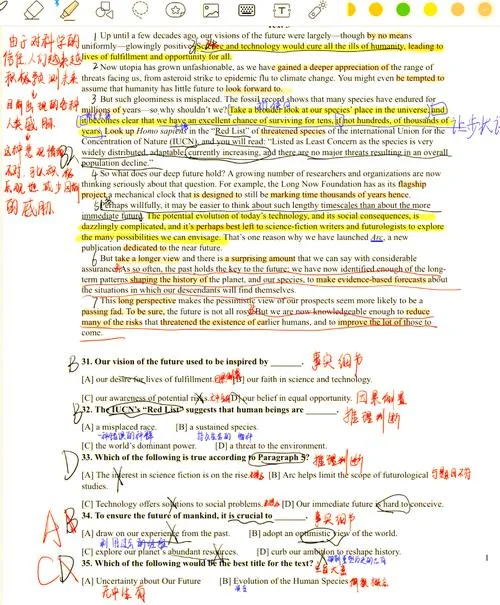 Text 3
1 Up until a few decades ago, our visions of the future were largely—though by no means
uniformly—glowingly positive. Science and technology would cure all the ills of humanity, leading to
lives of fulfillment and opportunity for all.
2 Now utopia has grown unfashionable, as we have gained a deeper appreciation of the range of
threats facing us, from asteroid strike to epidemic flu to climate change. You might even be tempted to
assume that humanity has little future to look forward to.
3 But such gloominess is misplaced. The fossil record shows that many species have endured for
millions of years—so why shouldn't we? Take a broader look at our species' place in the universe, and
it becomes clear that we have an excellent chance of surviving for tens, if not hundreds, of thousands of
years. Look up Homo sapiens in the "Red List" of threatened species of the international Union for the
Concentration of Nature (IUCN), and you will read: "Listed as Least Concern as the species is very
widely distributed, adaptable, currently increasing, and there are no major threats resulting in an overall
population decline."
4 So what does our deep future hold? A growing number of researchers and organizations are now
thinking seriously about that question. For example, the Long Now Foundation has as its flagship
project a mechanical clock that is designed to still be marking time thousands of years hence.
5 Perhaps willfully, it may be easier to think about such lengthy timescales than about the more
immediate future. The potential evolution of today's technology, and its social consequences, is
dazzlingly complicated, and it's perhaps best left to science-fiction writers and futurologists to explore
the many possibilities we can envisage. That's one reason why we have launched Arc, a new
publication dedicated to the near future.
6 But take a longer view and there is a surprising amount that we can say with considerable
assurance. As so often, the past holds the key to the future: we have now identified enough of the long-
term patterns shaping the history of the planet, and our species, to make evidence-based forecasts about
the situations in which our descendants will find themselves.
7 This long perspective makes the pessimistic view of our prospects seem more likely to be a
passing fad. To be sure, the future is not all rosy. But we are now knowledgeable enough to reduce
many of the risks that threatened the existence of earlier humans, and to improve the lot of those to
come.
让步状语
B 31. Our vision of the future used to be inspired by ______. 事实细节
[A] our desire for lives of fulfillment. 因果倒置 [B] our faith in science and technology.
[C] our awareness of potential risks. [D] our belief in equal opportunity. 因果倒置
B 32. The IUCN's "Red List" suggests that human beings are ______. 推理判断
[A] a misplaced race. [B] a sustained species.
[C] the world's dominant power. [D] a threat to the environment.
D 33. Which of the following is true according to Paragraph 5? 推理判断
[A] The interest in science fiction is on the rise. [B] Arc helps limit the scope of futurological
studies.
[C] Technology offers solutions to social problems. [D] Our immediate future is hard to conceive.
A B 34. To ensure the future of mankind, it is crucial to ______. 事实细节
[A] draw on our experience from the past. [B] adopt an optimistic view of the world.
[C] explore our planet's abundant resources. [D] curb our ambition to reshape history.
C D 35. Which of the following would be the best title for the text?
[A] Uncertainty about Our Future [B] Evolution of the Human Species
无中生有